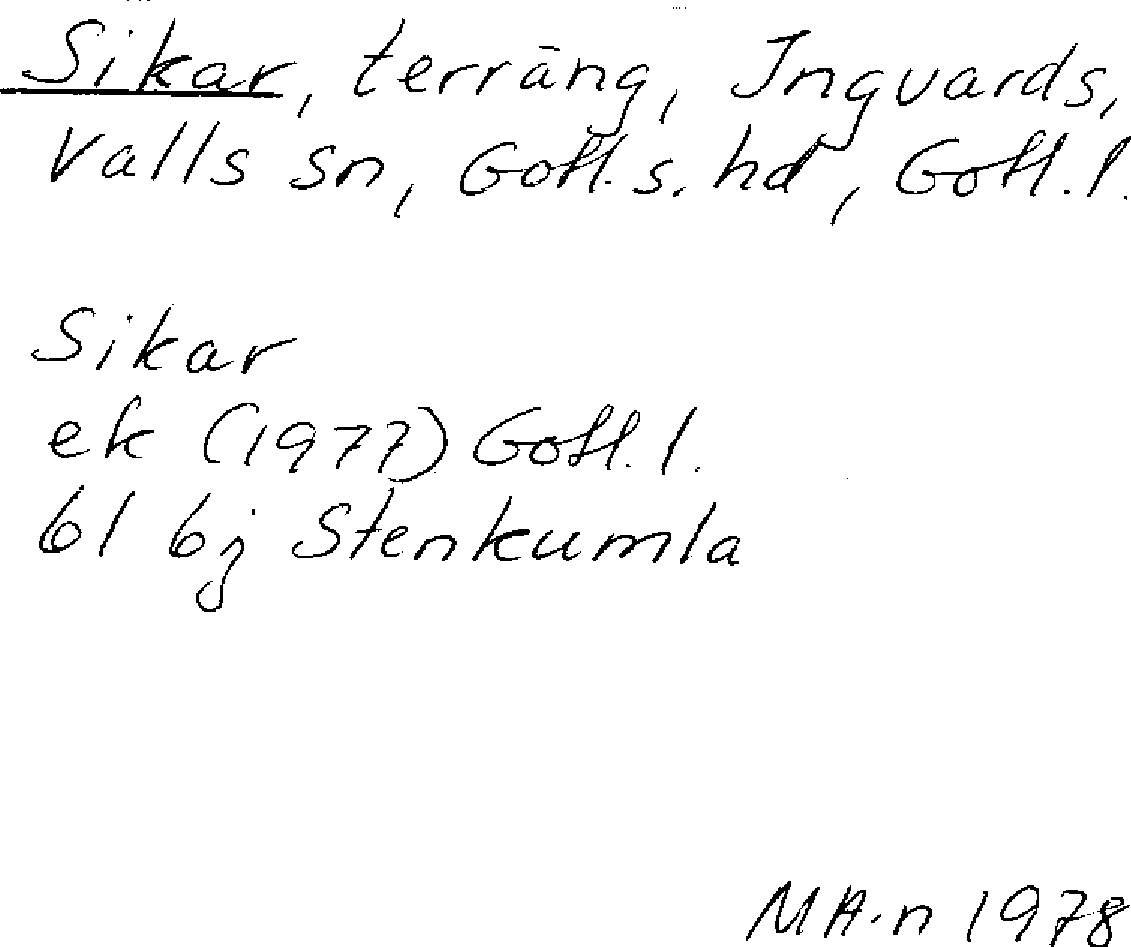 Sikar, terräng, Ingvards,
Valls sn, Gotl. s. hd, Gotl. l.
Sikar
ek (1977) Gotl. l.
6I 6j Stenkumla
MA-n 1978